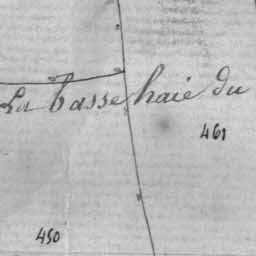 La basse haie du
461
450